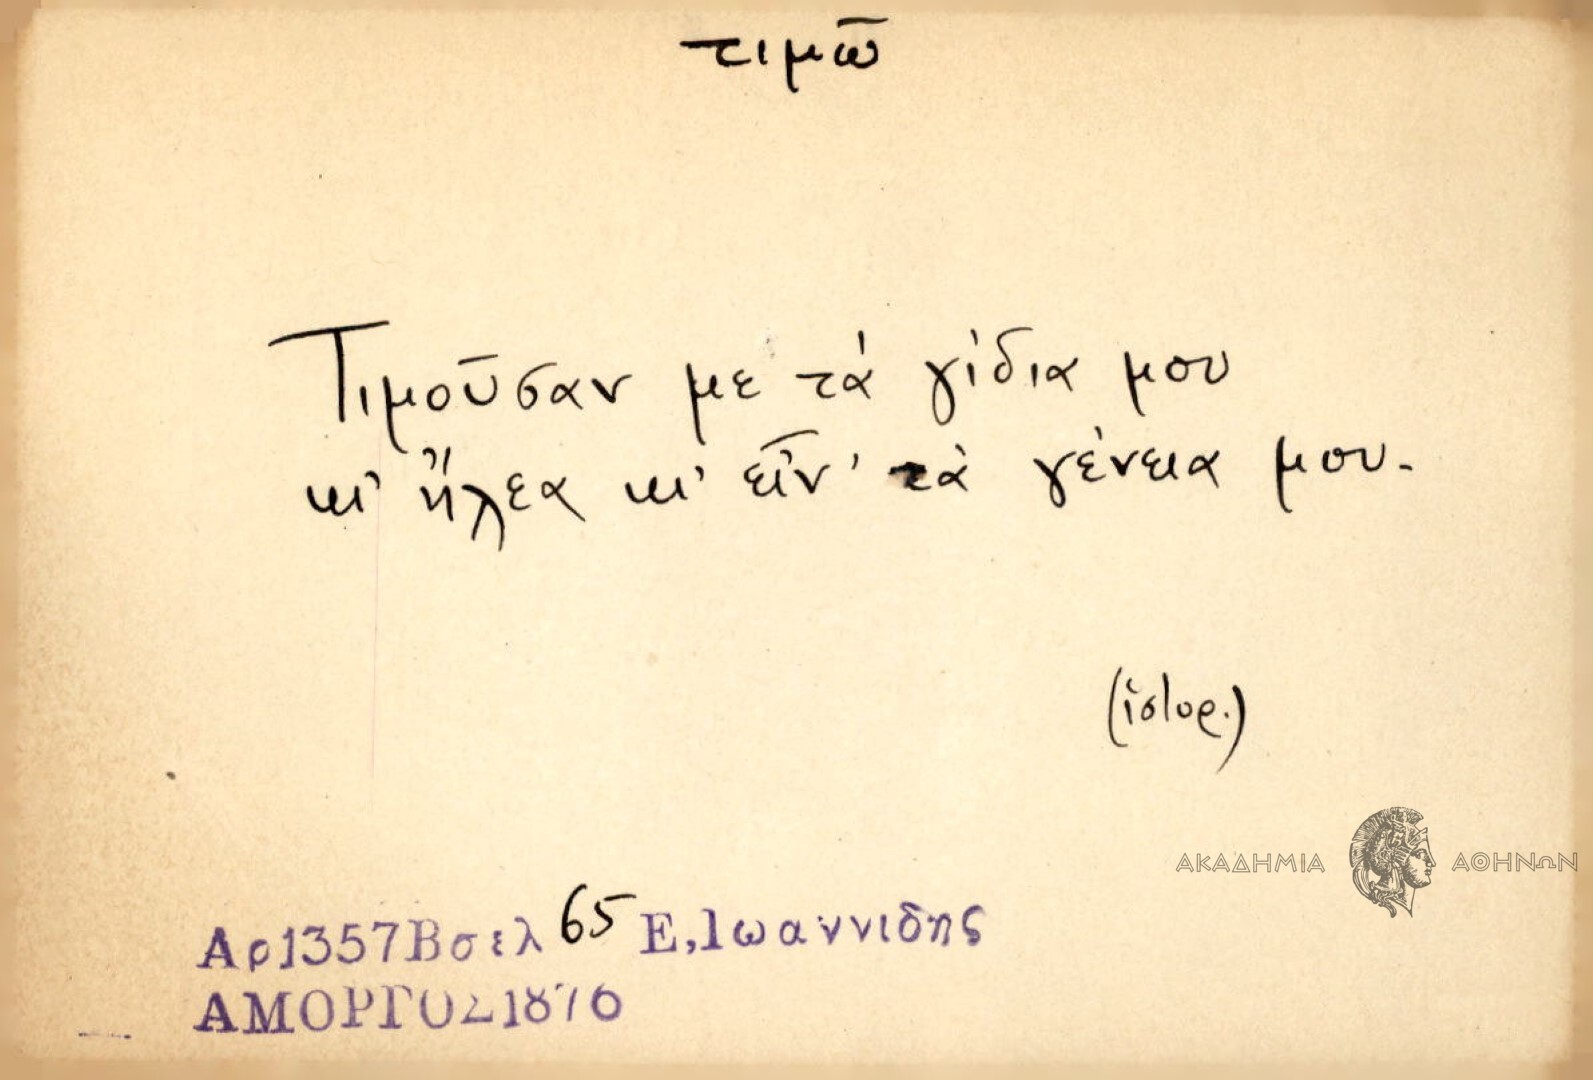 τιμῶ
Τιμοῦσαν με τά γίδια μου
κι' ἤλεα κι' εἶν' τὰ γένεια μου.
(ἱστορ.)
ΑΚΑΔΗΜΙΑ ΑΘΗΝΩΝ
Αρ1357Βσελ 65 Ε,Ιωαννιδης
ΑΜΟΡΓΟΣ1876